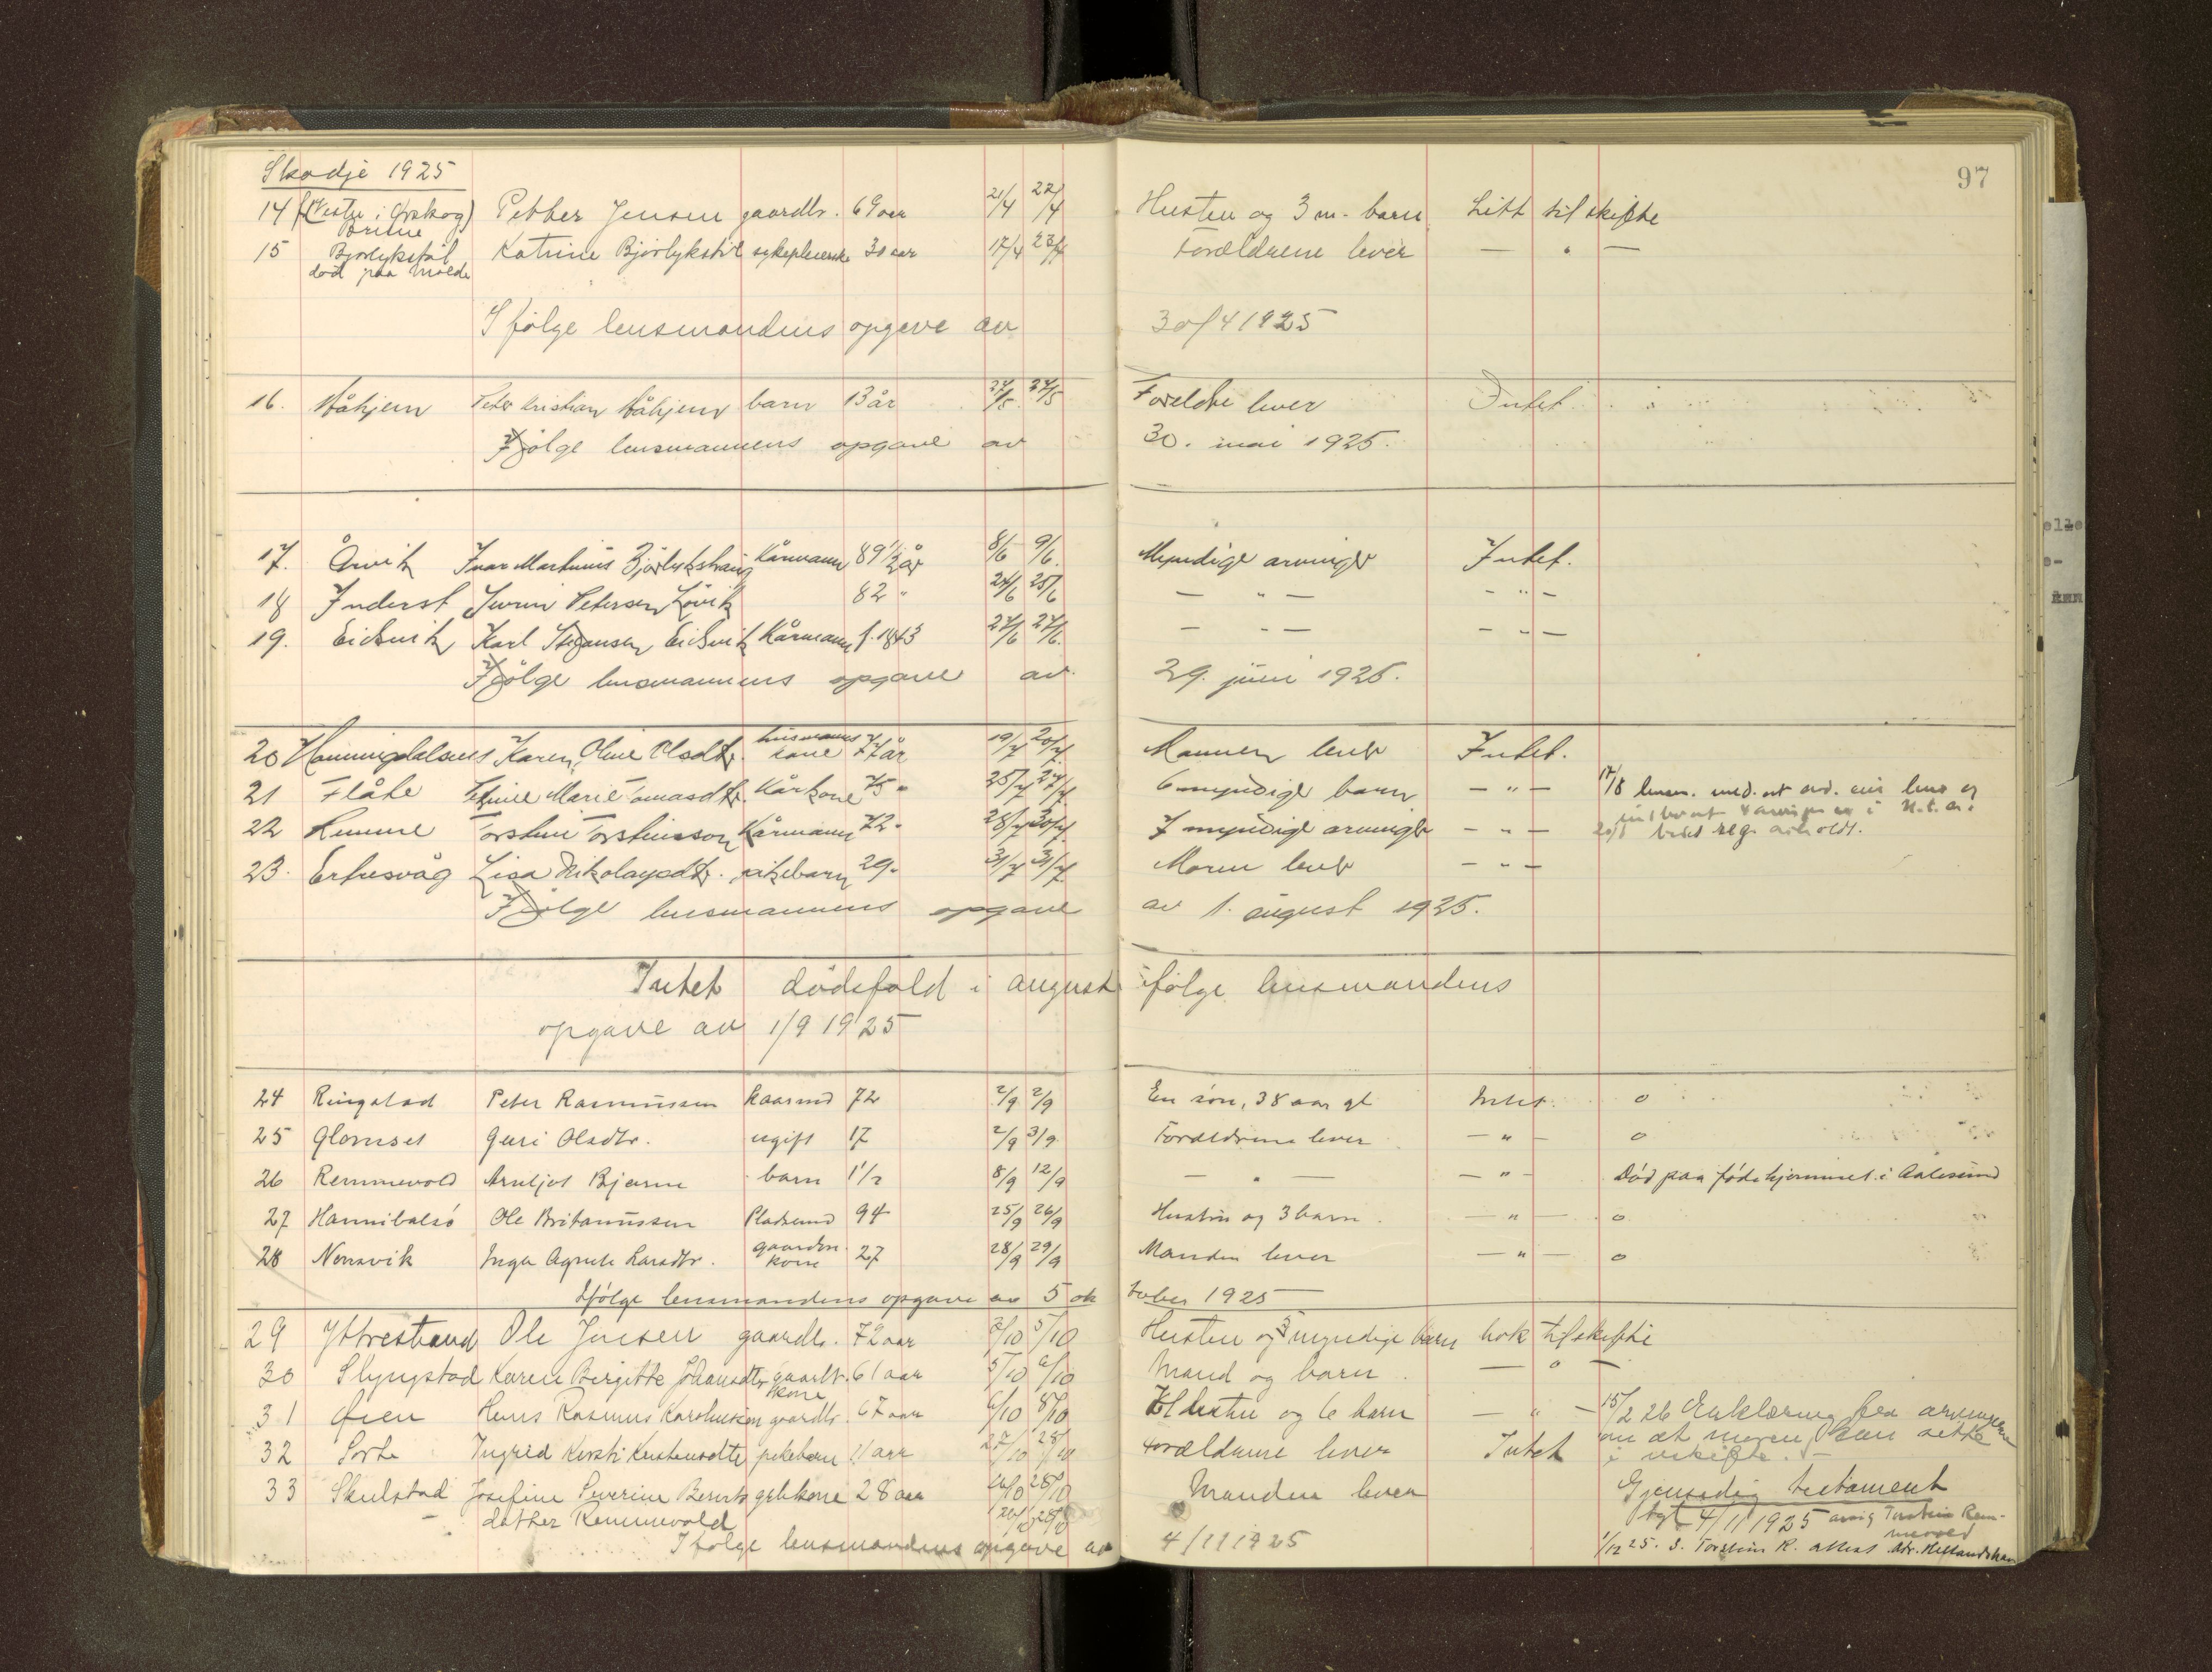 97
Skodje 1925
14 (Vestre i Ørskog) Petter Jensen gaardbr. 69 aar 21/4 27/4 Hustru og 3 m. barn Litt til skifte
Brune
15 Bjørlykstøl Katrine Bjørlykstøl sykepleierske 30 aar 17/4 23/4 Forældrene lever — " —
død paa Molde
Ifølge lensmandens opgave av 30/4 1925
16. Håhjem Peter Kristian Håhjem barn 13 år 27/5 27/5 Foreldre lever Intet
Ifølge lensmannens opgave av 30. mai 1925.
17. Årvik Ivar Martinus Bjørlykhaug Kårmann 89 1/2 år 8/6 9/6. Myndige arvinger Intet.
18 Inderst Petersen Løvik 82 " 24/6 25/6 — " — — " —
19. Eidsvik Karl Stefansen Eidsvik Kårmann f. 1843 27/6 27/6. — " — — " —
Ifølge lensmannens opgave av 29. juni 1925.
20 Karen Oline Olsdtr. husmanns kone 77 år 19/7 20/7. Mannen lever Intet.
21 Flåte Marie Tomasdtr. Kårkone 75 " 25/7 27/7. 6 myndige barn — " — 17/8 lensm. med. at avd. lens og
22 Remme Torstein Torsteinsson Kårmann 72 " 28/7 30/7. 7 myndige arvinger — " —
23. Erknesvåg Lisa Nikolaysdtr. pikebarn 29 " 31/7 31/7 Moren lever — " —
Ifølge lensmannens opgave av 1. august 1925.
Intet dødsfald i august ifølge lensmandens
opgave av 1/9 1925
24 Ringstad Peter Rasmussen kaarmd 72 2/9 2/9 En søn, 38 aar gl Intet. o
25 Glomset Guri Olsdtr. ugift 17 2/9 3/9 Forældrene lever — " — o
26 Remmevold Arnljot Bjarne barn 1 1/2 8/9 12/9 — " — — " — Død paa fødehjemmet i Aalesund
27 Hannibalsø Ole Britanussen Pladsmd 94 25/9 26/9 Hustru og 3 barn. — " — o
28 Norvik Inga Agnete Larsdtr. gaardm. kone 27 28/9 29/9 Manden lever — " — o
Ifølge lensmandens opgave av 5 oktober 1925
29 Yttrestrand Ole Jensen gaardbr. 72 aar 2/10 5/10 Hustru og 5 myndige barn nok til skifte
30 Slyngstad Karen Birgitte Johansdtr gaardbr. kone 61 aar 5/10 6/10 Mand og barn — " —
31 Øien Hans Rasmus Karolussen gaardbr. 67 aar 6/10 8/10 Hustru og 6 barn — " — 15/2 26 Erklæring fra arvingerne
32 Sorte Ingrid Kirsti pikebarn 11 aar 27/10 28/10 Forældrene lever Intet om at moren kan sitte
i uskifte.
33 Skulstad Josefine Severine Bernts gbrkone 28 aar 28/10 Manden lever Gjensidig testament
datter Remmevold tgt 4/11 1925 Torstein Remmevold
Ifølge lensmandens opgave av 4/11 1925 1/12 25. S. Torstein R. attest